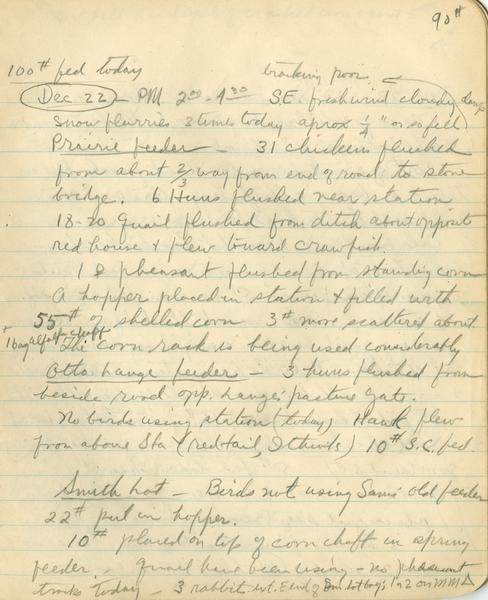 90#
100# fed today tracking poor
Dec 22 - PM 2:00 - 4:30 S.E. fresh wind cloudy damp
Snow flurries 3 times today aprox 1/4" or so fell
Prairie feeder - 31 chickens flushed
from about 2/3 way from end of road to stone
bridge. 6 Huns flushed near station
18-20 Quail flushed from ditch about opposite
red house & flew toward crawfish.
1 ♀ pheasant flushed from standing corn
A hopper placed in station & filled with
55# of shelled corn 3# more scattered about
+ 1 bag alfalfa chaff
The corn rack is being used considerably
Otto Lange feeder - 3 huns flushed from
beside road opp. Lange's pasture gate.
No birds using station (today) Hawk flew
from above Sta (redtail, I think) 10# S.C. fed.
Smith lot - Birds not using Sam's old feeder
22# put in hopper.
10# placed on top of corn chaff in spring
feeder - Quail have been using - no pheasant
tracks today - 3 rabbit